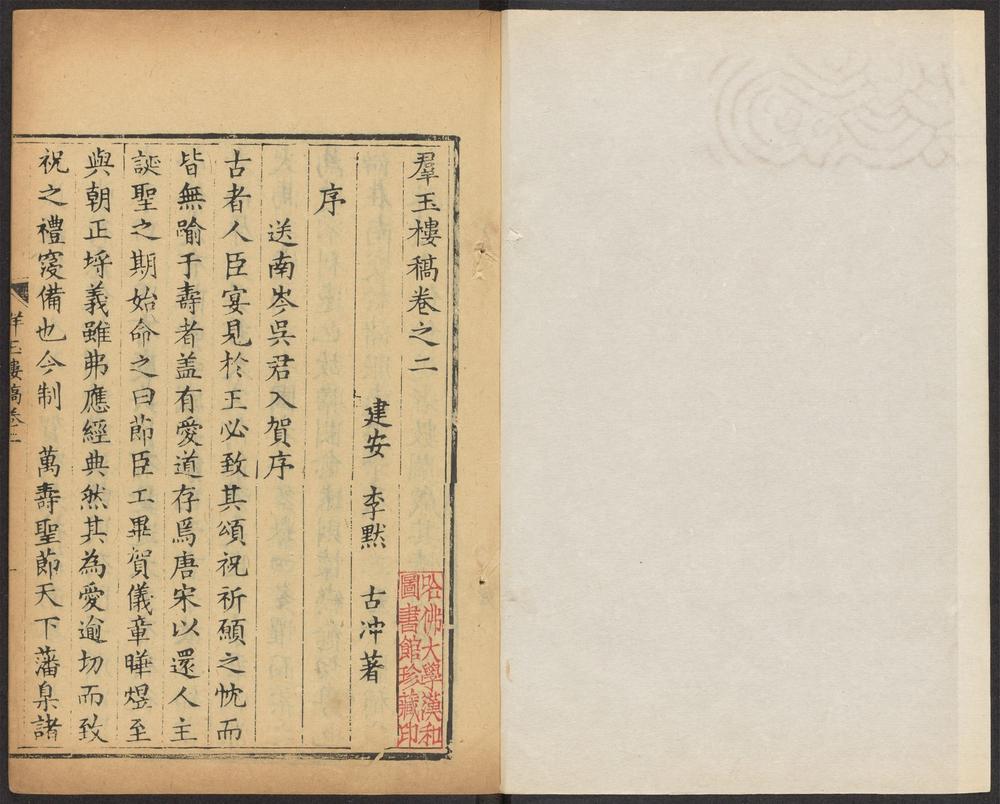 羣玉樓稿卷之二
建安 李默 古冲著
序
送南岑吳君入賀序
古者人臣宴見於王必致其頌祝祈願之忱而
皆無踰于壽者盖有愛道存焉唐宋以還人主
誕聖之期始命之曰節臣工畢賀儀章曄煜至
與朝正埒義雖弗應經典然其為愛逾切而致
祝之禮寖備也今制 萬壽聖節天下藩臬諸
羣玉樓稿卷二
哈佛大學漢和
圖書館珍藏印